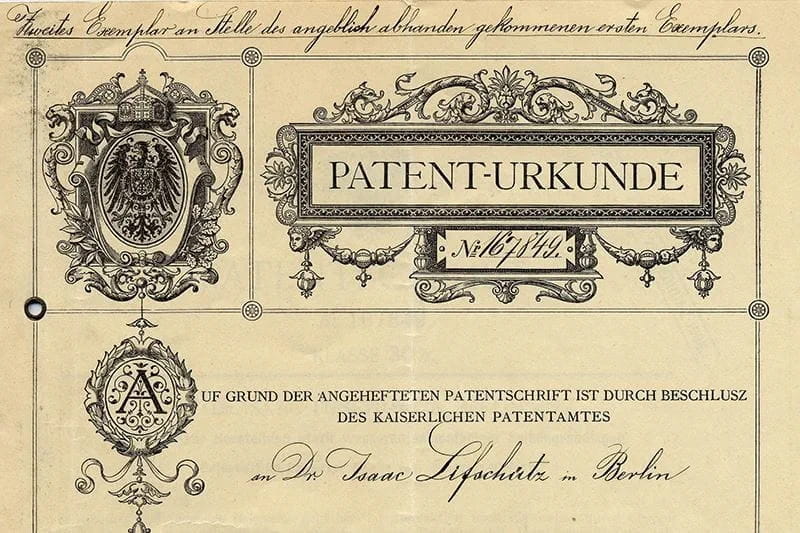 Zweites Exemplar an Stelle des angeblich abhanden gekommenen ersten Exemplars.
PATENT-URKUNDE
No 167849.
AUF GRUND DER ANGEHEFTETEN PATENTSCHRIFT IST DURCH BESCHLUSZ
DES KAISERLICHEN PATENTAMTES
an Dr. Isaac Lifschütz in Berlin